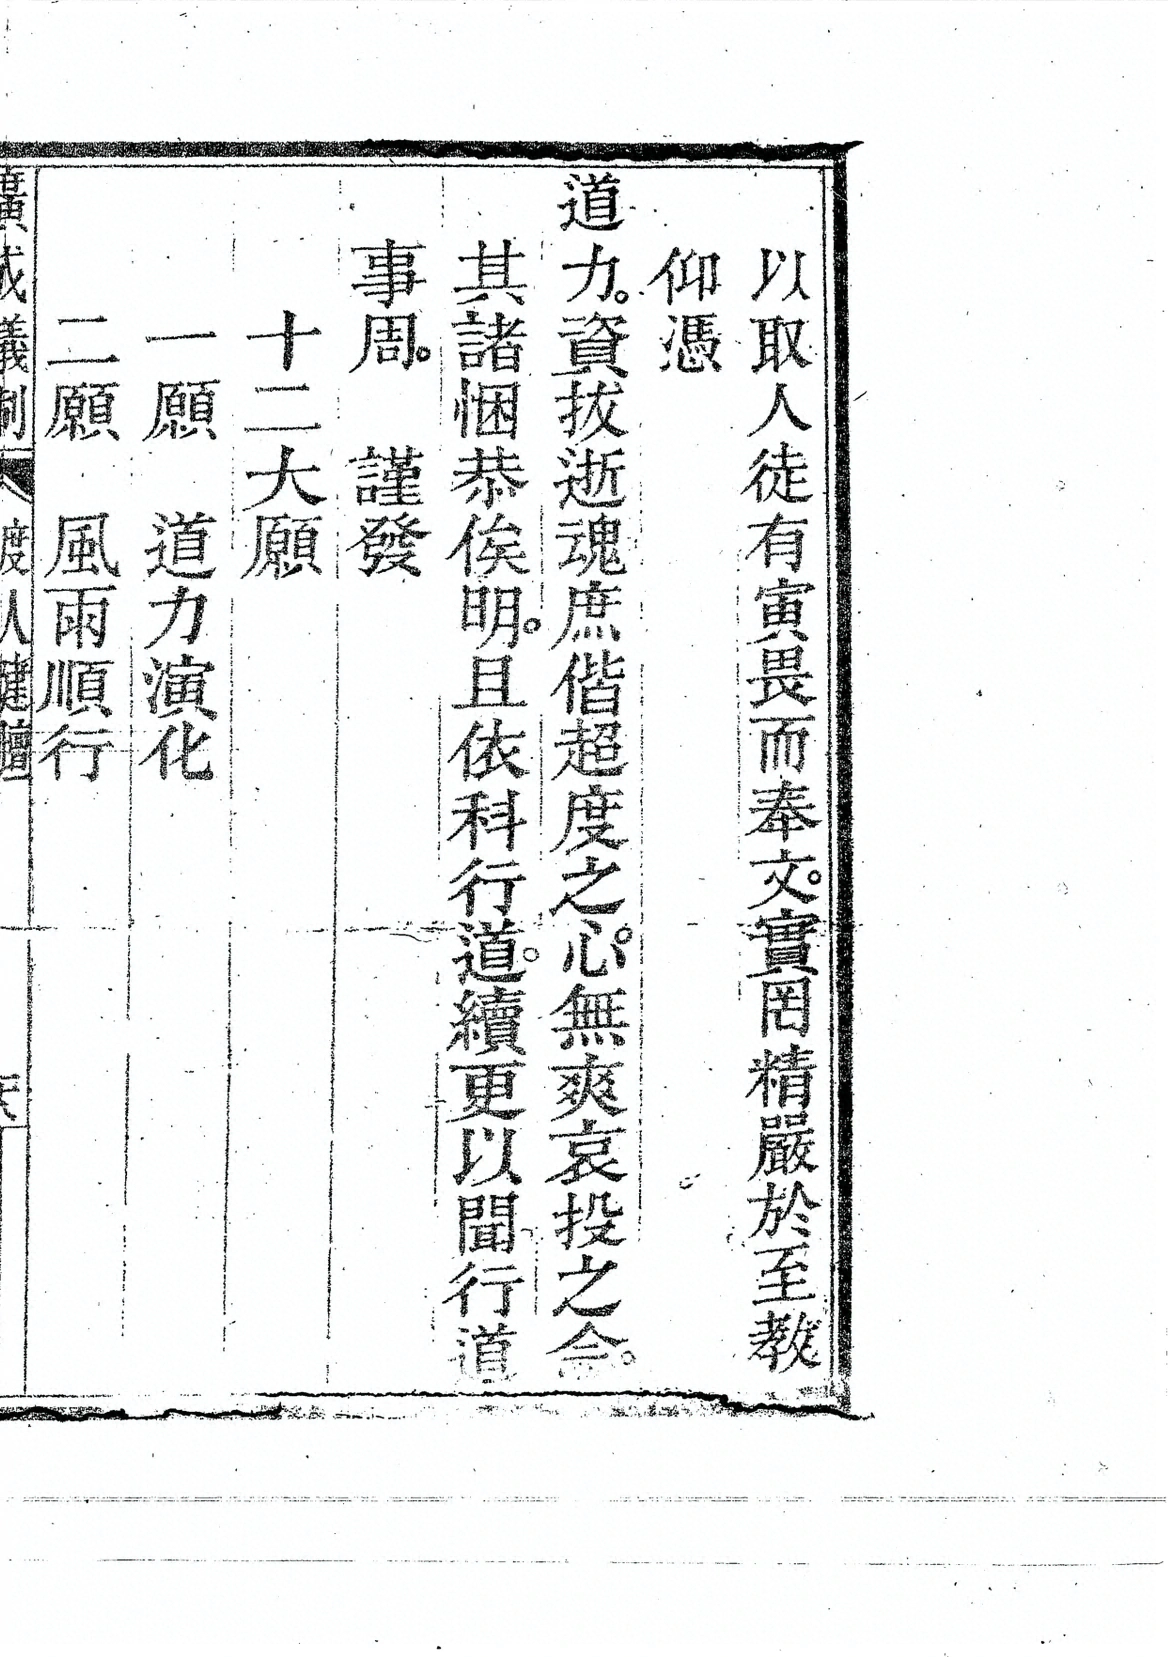 以取人徒有寅畏而奉文。實罔精嚴於至教
仰憑
道力。資拔逝魂庶偕超度之心。無爽哀投之念。
其諸悃恭俟明。且依科行道。續更以聞行道
事周。 謹發
十二大願
一願 道力演化
二願 風雨順行
廣成儀制 度人建壇